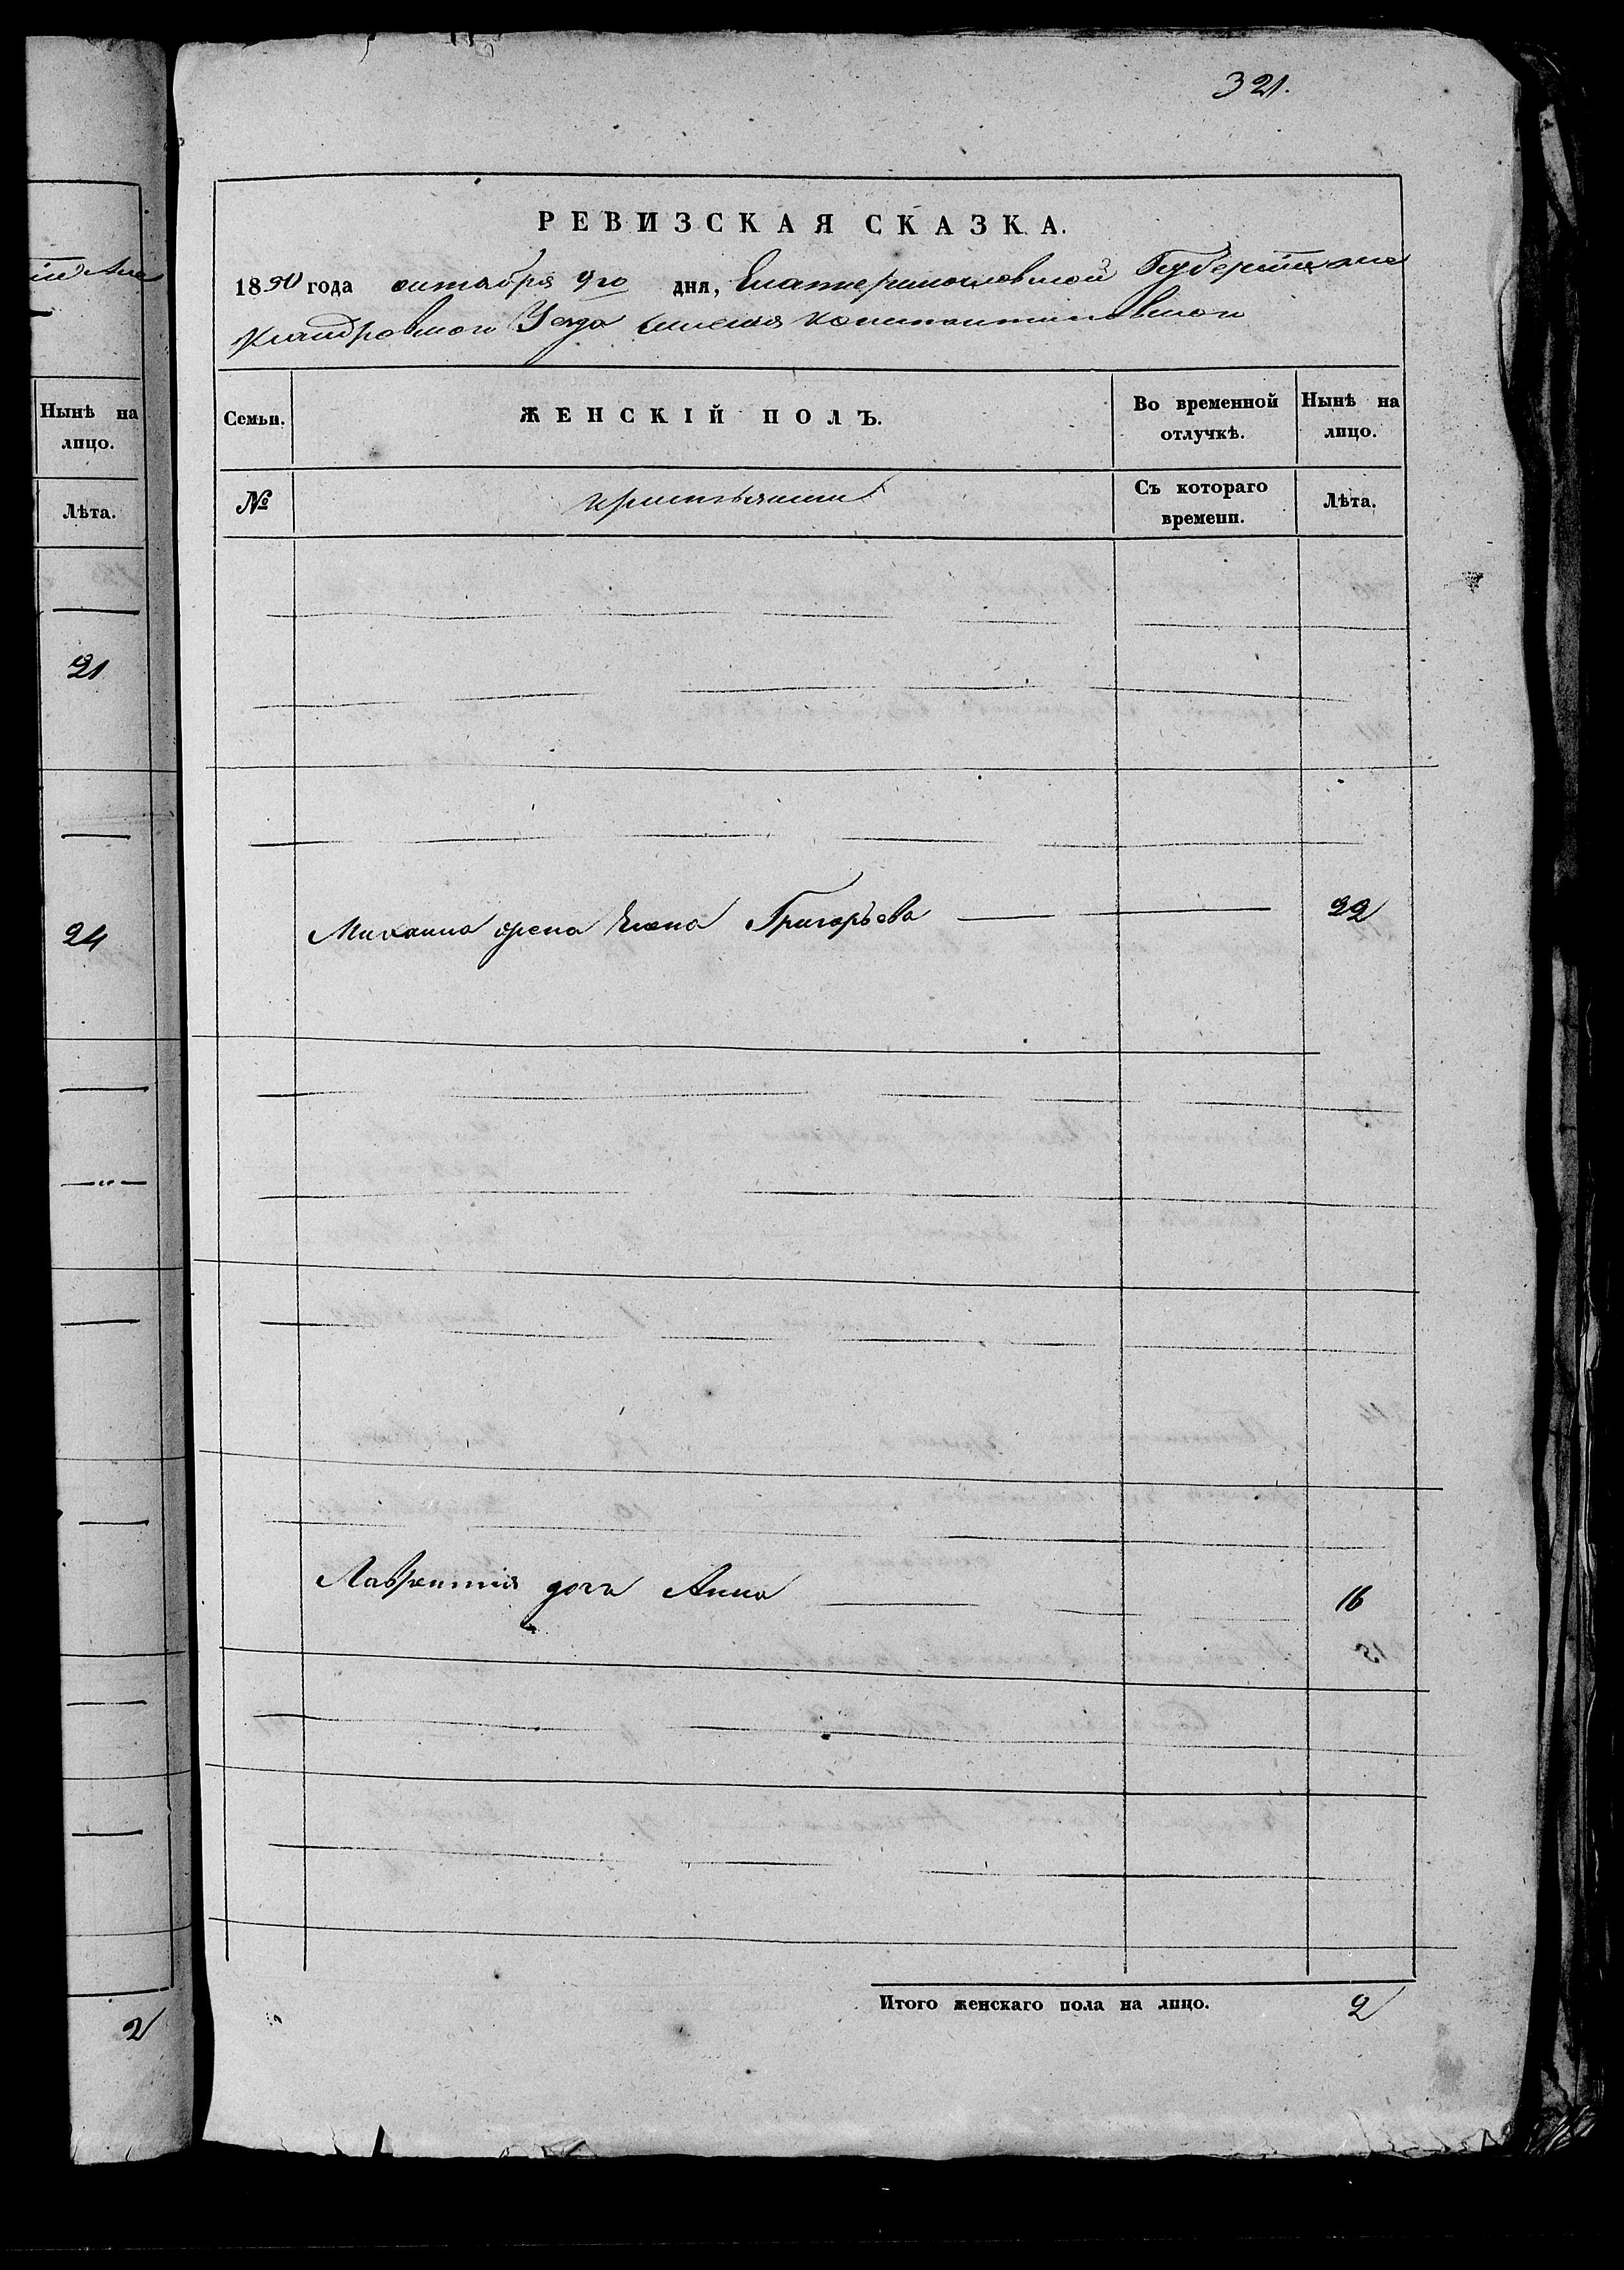 321.
Нынѣ на
лицо.
Лѣта.
21
24
2
РЕВИЗСКАЯ СКАЗКА.
1850 года октября 9го дня, Екатеринославской Губернии Але
ксандровскаго Уезда имения Константиновскаго
Семьи. ЖЕНСКІЙ ПОЛЪ. Во временной отлучкѣ. Нынѣ на лицо.
№ Съ котораго времени. Лѣта.
Михаила жена Елена Григорьева 22
Лаврентия дочь Анна 16
Итого женскаго пола на лицо. 2